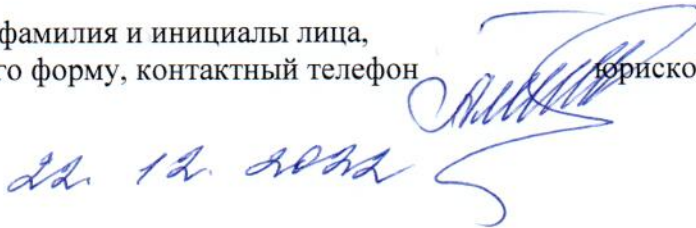 фамилия и инициалы лица,
го форму, контактный телефон юриско
22. 12. 2022